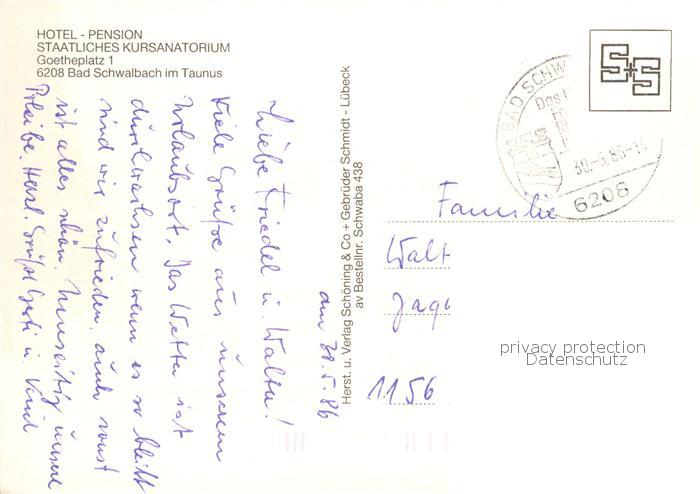 HOTEL - PENSION
STAATLICHES KURSANATORIUM
Goetheplatz 1
6208 Bad Schwalbach im Taunus
am 30.5.86
Liebe Friedel u. Walter!
Viele Grüße aus unserem
Urlaubsort. Das Wetter ist
durchwachsen wenn es so bleibt
sind wir zufrieden, auch sonst
ist alles schön. unsere
Bleibe. Herzl. Grüße u.
Herst. u. Verlag Schöning & Co + Gebrüder Schmidt - Lübeck
av Bestellnr. Schwaba 438
BAD SCHW
Das
30.-5.86-14
6208
Familie
Walt
Jagu
1156
privacy protection
Datenschutz